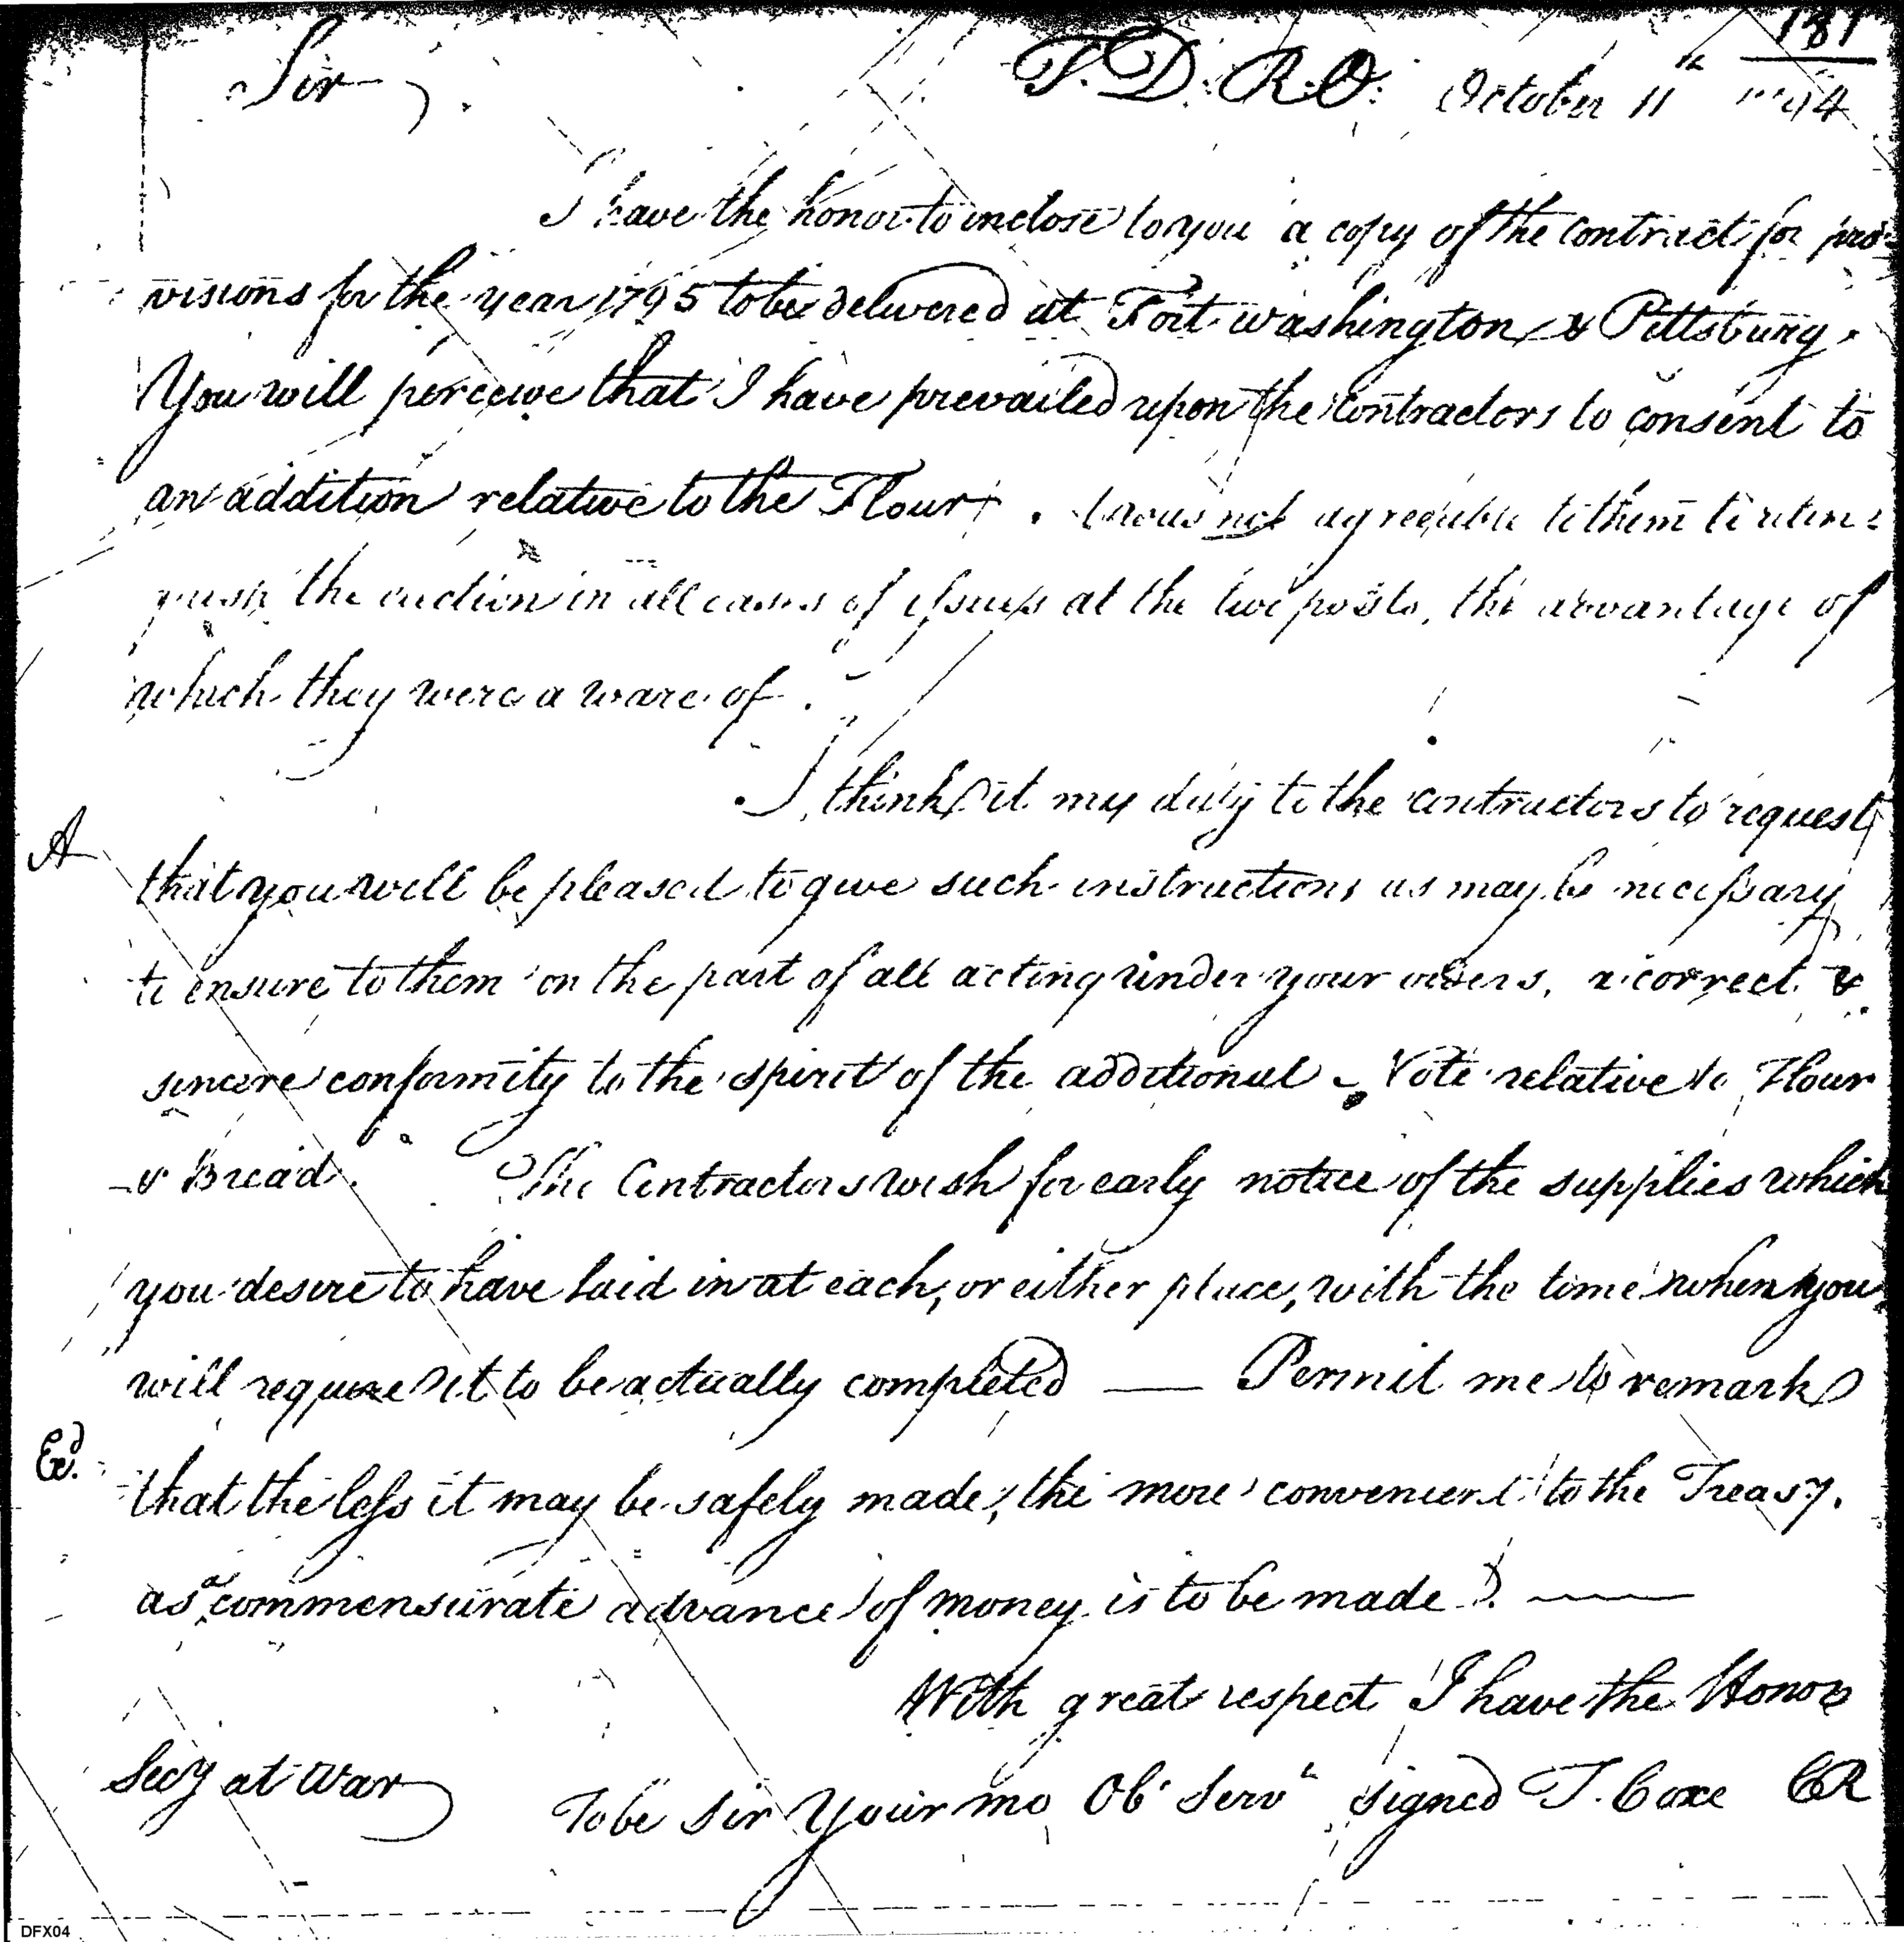 181
Sir, T. D: R. O: October 11th 1794
I have the honor to inclose to you a copy of the contract for pro-
visions for the year 1795 to be delivered at Fort Washington & Pittsburg.
You will perceive that I have prevailed upon the contractors to consent to
an addition relative to the Flour. It was not agreeable to them to relin=
quish the election in all cases of issues at the two posts, the advantage of
which they were aware of.
I think it my duty to the contractors to request
A
that you will be pleased to give such instructions as may be necessary
to ensure to them on the part of all acting under your orders, a correct &
sincere conformity to the spirit of the additional Note relative to Flour
& Bread. The Contractors wish for early notice of the supplies which
you desire to have laid in at each, or either place, with the time when you
will require it to be actually completed — Permit me to remark
Ed.
that the less it may be safely made, the more convenient to the Treasy.
as a commensurate advance of money is to be made. —
With great respect I have the Honor
Secy at War
To be Sir Your mo Obt Servt signed T. Coxe CR
DFX04